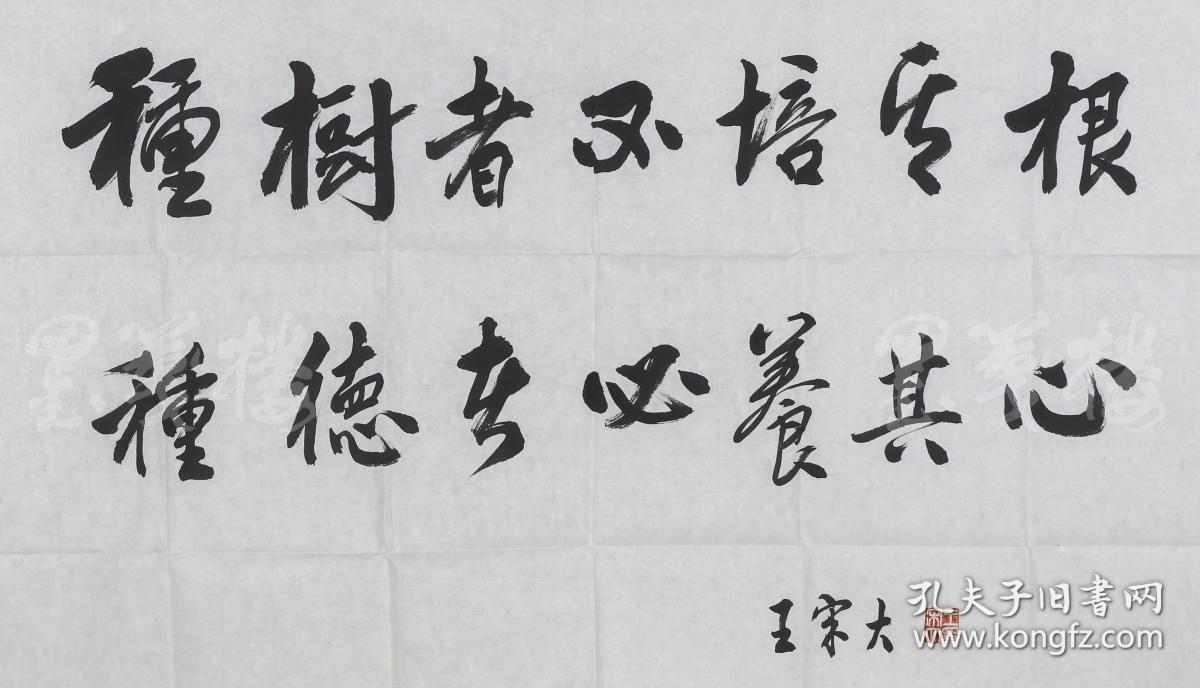 種樹者必培其根
種德者必養其心
王宋大
孔夫子旧書网
www.kongfz.com